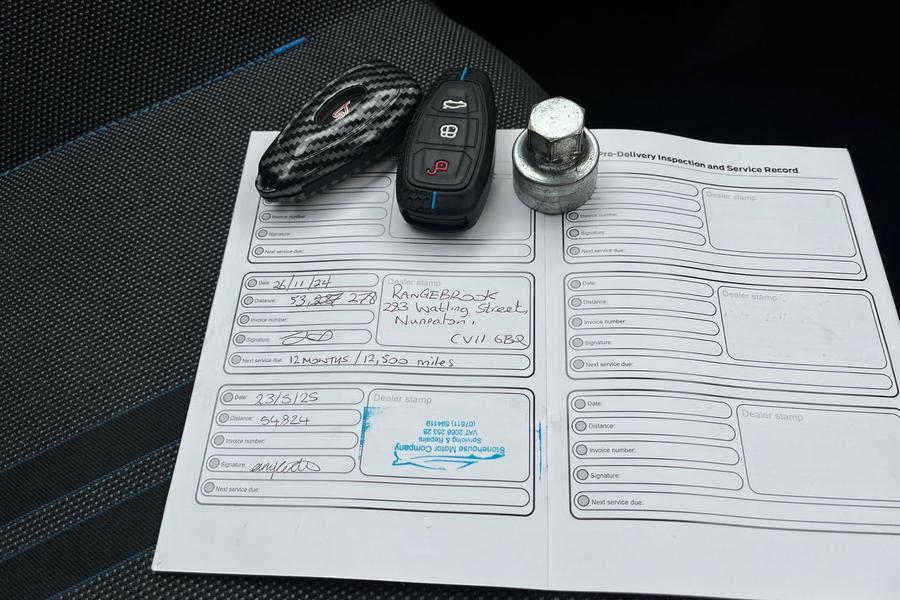 ST
Pre-Delivery Inspection and Service Record
Invoice number:
Signature:
Next service due:
Date: 26/11/24
Distance: 53,287 278
Invoice number:
Signature:
Next service due: 12 MONTHS / 12,500 miles
Dealer stamp
RANGEBROOK
283 Watling Street,
Nuneaton,
CV11 6BQ
Date: 23/5/25
Distance: 54824
Invoice number:
Signature:
Next service due:
Dealer stamp
Stonehouse Motor Company
Servicing & Repairs
VAT 2066 253 28
(07811) 594119
Invoice number:
Signature:
Next service due:
Dealer stamp
Date:
Distance:
Invoice number:
Signature:
Next service due:
Dealer stamp
Date:
Distance:
Invoice number:
Signature:
Next service due:
Dealer stamp